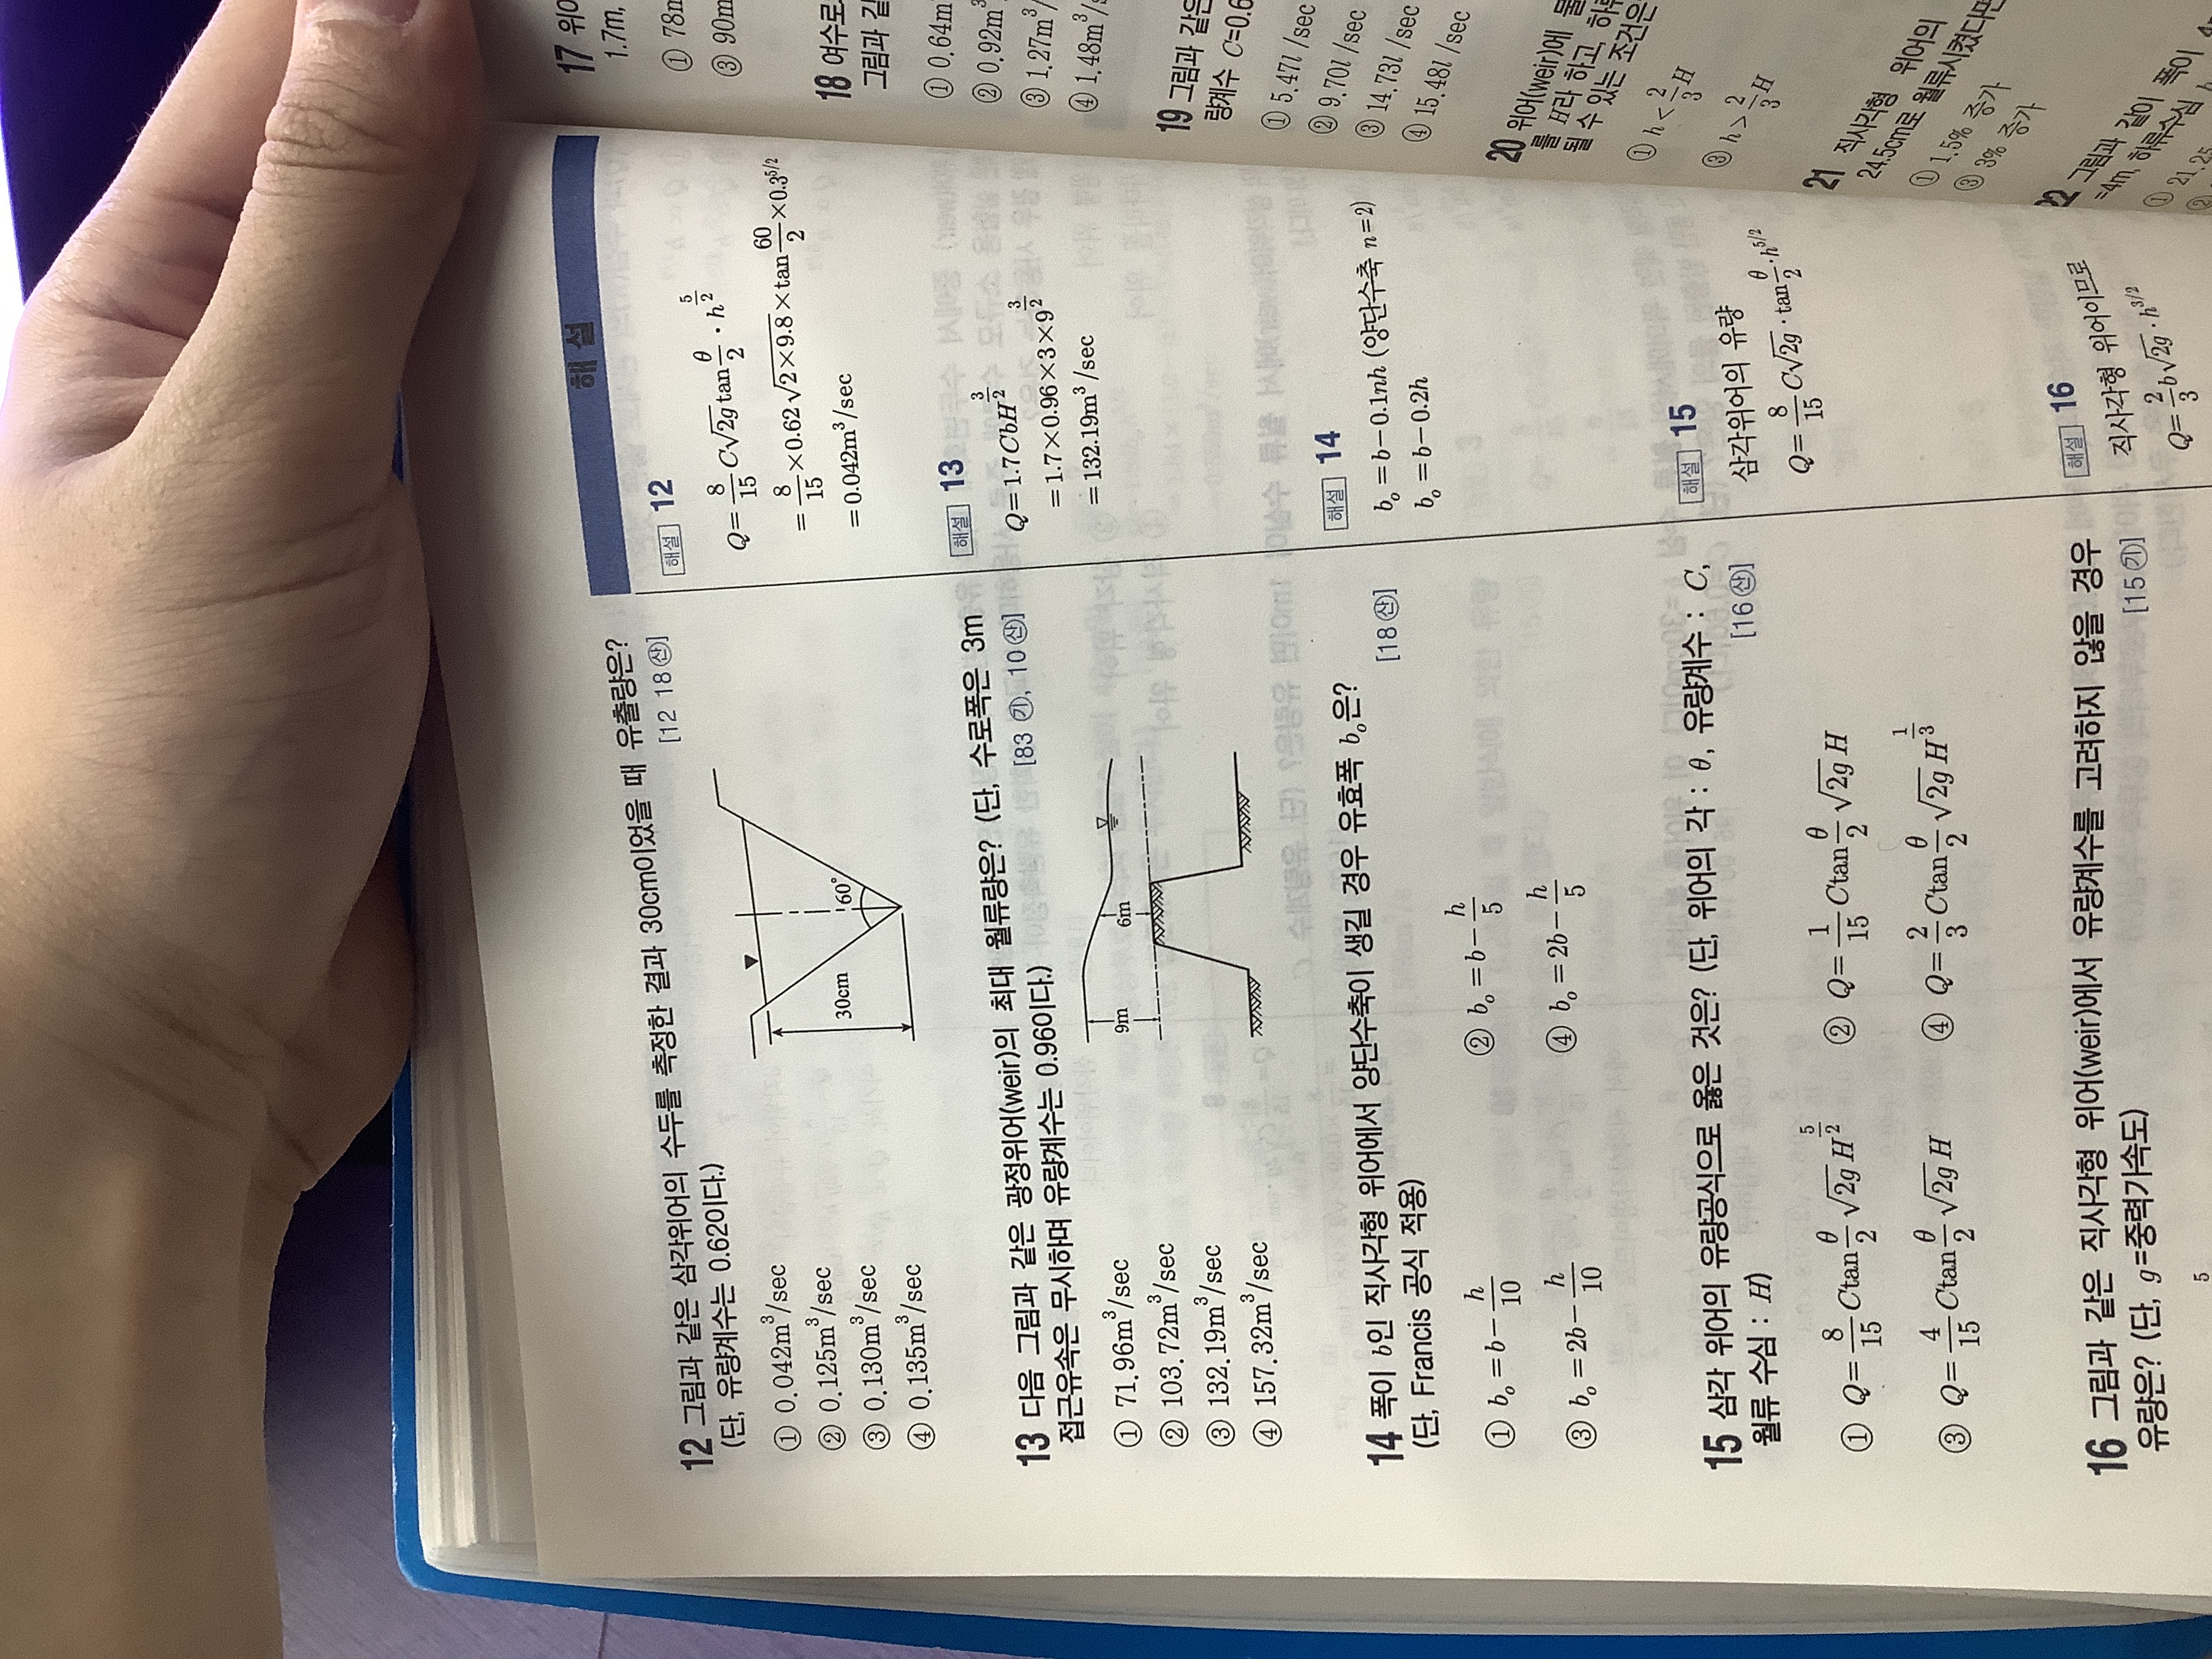 12 그림과 같은 삼각위어의 수두를 측정한 결과 30cm이었을 때 유출량은?
(단, 유량계수는 0.62이다.) [12 18㉮산]
① 0.042m³/sec
② 0.125m³/sec
③ 0.130m³/sec
④ 0.135m³/sec
30cm
60°
13 다음 그림과 같은 광정위어(weir)의 최대 월류량은? (단, 수로폭은 3m
접근유속은 무시하며 유량계수는 0.96이다.) [83 ㉮기, 10 산]
① 71.96m³/sec
② 103.72m³/sec
③ 132.19m³/sec
④ 157.32m³/sec
9m
6m
14 폭이 b인 직사각형 위어에서 양단수축이 생길 경우 유효폭 bₒ은?
(단, Francis 공식 적용) [18 산]
① bₒ = b - h/10
② bₒ = b - h/5
③ bₒ = 2b - h/10
④ bₒ = 2b - h/5
15 삼각 위어의 유량공식으로 옳은 것은? (단, 위어의 각 : θ, 유량계수 : C,
월류 수심 : H) [16 산]
① Q = 8/15 C tan θ/2 √2g H^(5/2)
② Q = 1/15 C tan θ/2 √2g H
③ Q = 4/15 C tan θ/2 √2g H
④ Q = 2/3 C tan θ/2 √2g H^(1/3)
16 그림과 같은 직사각형 위어(weir)에서 유량계수를 고려하지 않을 경우
유량은? (단, g=중력가속도) [15 기]
5
해 설
해설 12
Q = 8/15 C√2g tan θ/2 · h^(5/2)
= 8/15 × 0.62 √2×9.8 × tan 60/2 × 0.3^(5/2)
= 0.042m³/sec
해설 13
Q = 1.7CbH^(3/2)
= 1.7×0.96×3×9^(3/2)
= 132.19m³/sec
해설 14
bₒ = b - 0.1nh (양단수축 n=2)
bₒ = b - 0.2h
해설 15
삼각위어의 유량
Q = 8/15 C√2g · tan θ/2 · h^(5/2)
해설 16
직사각형 위어이므로
Q = 2/3 b√2g · h^(3/2)
17 위
1.7m,
① 78m
③ 90m
18 여수로
그림과 같
① 0.64m³
② 0.92m³
③ 1.27m³/
④ 1.48m³/s
19 그림과 같은
량계수 C=0.6
① 5.47l/sec
② 9.70l/sec
③ 14.73l/sec
④ 15.48l/sec
20 위어(weir)에 물
를 H라 하고, 하류
될 수 있는 조건은
① h < 2/3 H
③ h > 2/3 H
21 직사각형 위어의
24.5cm로 월류시켰다면
① 1.5% 증가
③ 3% 증가
22 그림과 같이 폭이
=4m, 하류수심
① 21.25
②